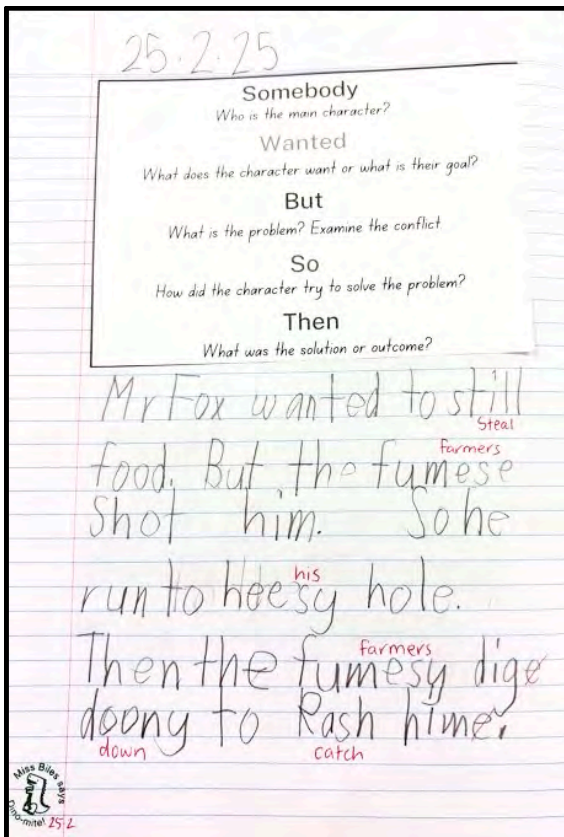 25.2.25
Somebody
Who is the main character?
Wanted
What does the character want or what is their goal?
But
What is the problem? Examine the conflict
So
How did the character try to solve the problem?
Then
What was the solution or outcome?
Mr Fox wanted to still
Steal
farmers
food. But the fumese
shot him. So he
his
run to heesy hole.
farmers
Then the fumesy dige
doony to Rash hime.
down catch
Miss Biles says
Dino-mite! 25.2